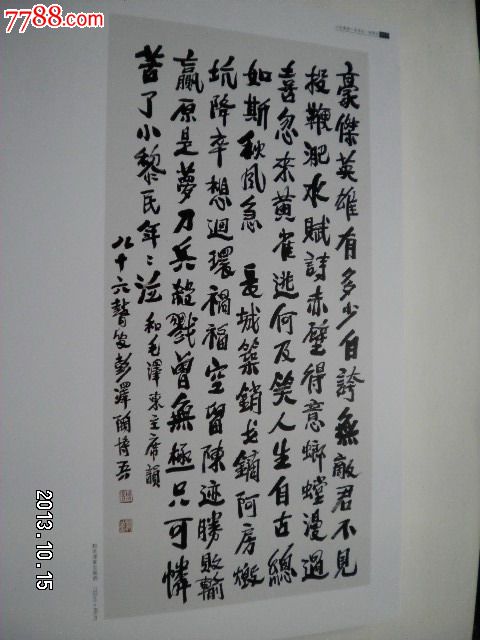 7788.com
中国收藏热线
豪傑英雄有多少自誇無敵君不見
投鞭淝水賦詩赤壁得意螂螳漫過
喜忽來黄雀逃何及笑人生自古總
如斯秋風急 長城築銷戈鏑阿房燬
坑降卒想迴環禍福空留陳迹勝敗輸
贏原是夢刀兵殺戮曾無極只可憐
苦了小黎民年〻泣 和毛澤東主席韻
八十六瞽叟彭澤陶博吾
2013.10.15